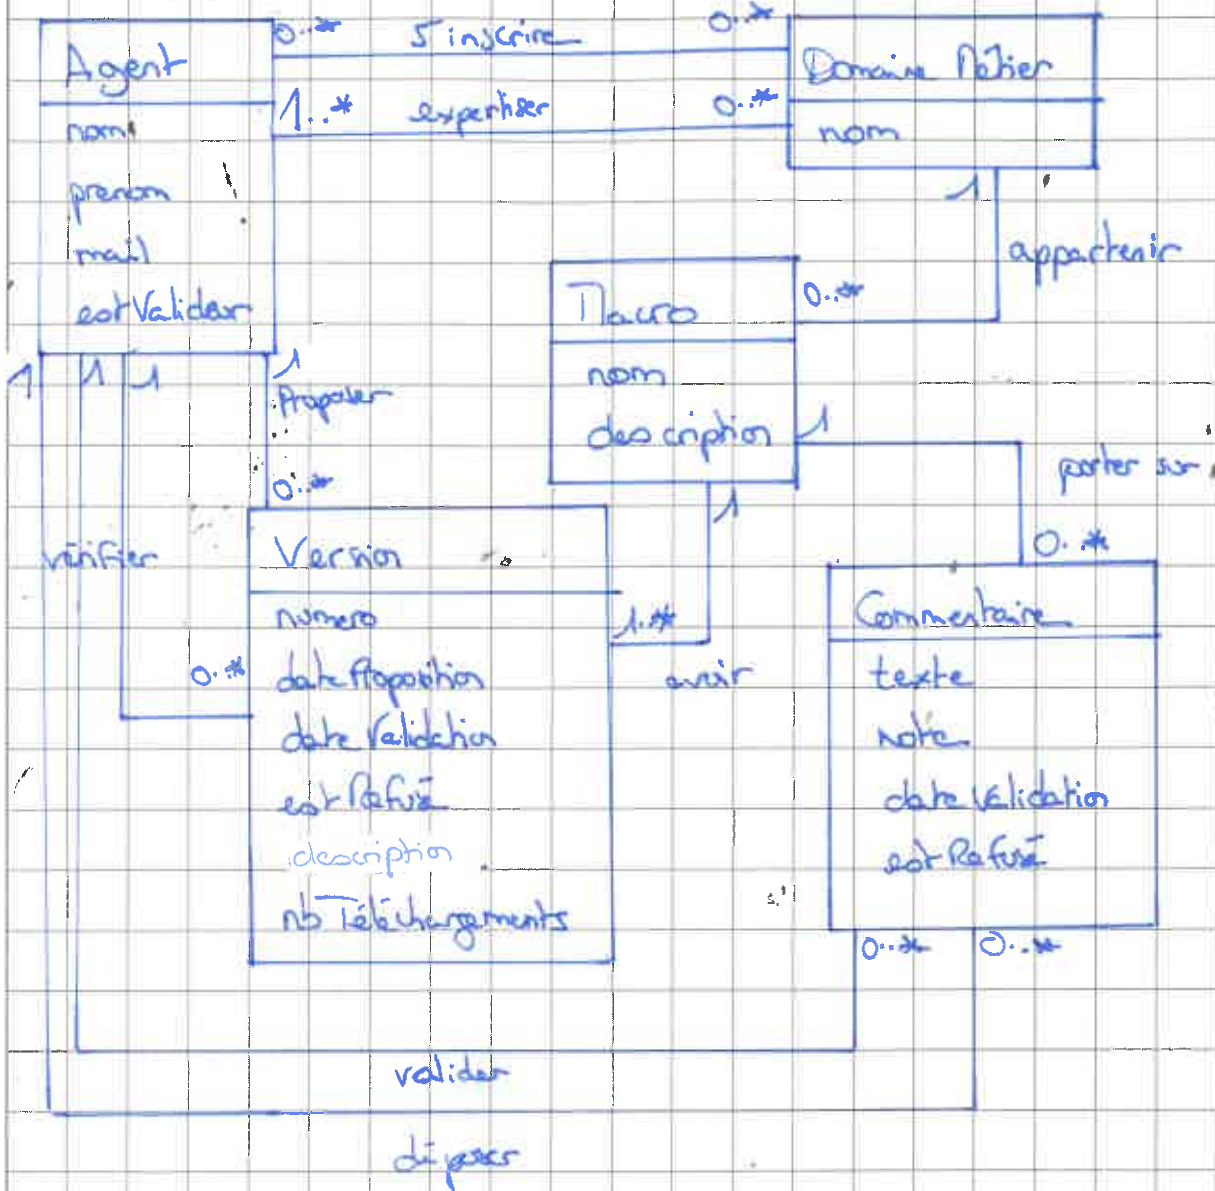 Agent
nom
prenom
mail
estValideur
0..*
S'inscrire
0..*
1..*
expertiser
0..*
Domaine Métier
nom
1
appartenir
0..*
Macro
nom
description
1
porter sur
0..*
1
1
1
1
Proposer
0..*
vérifier
0..*
Version
numero
dateProposition
dateValidation
estRefusé
description
nbTéléchargements
1
1..*
avoir
Commentaire
texte
note
dateValidation
estRefusé
0..*
0..*
valider
déposer